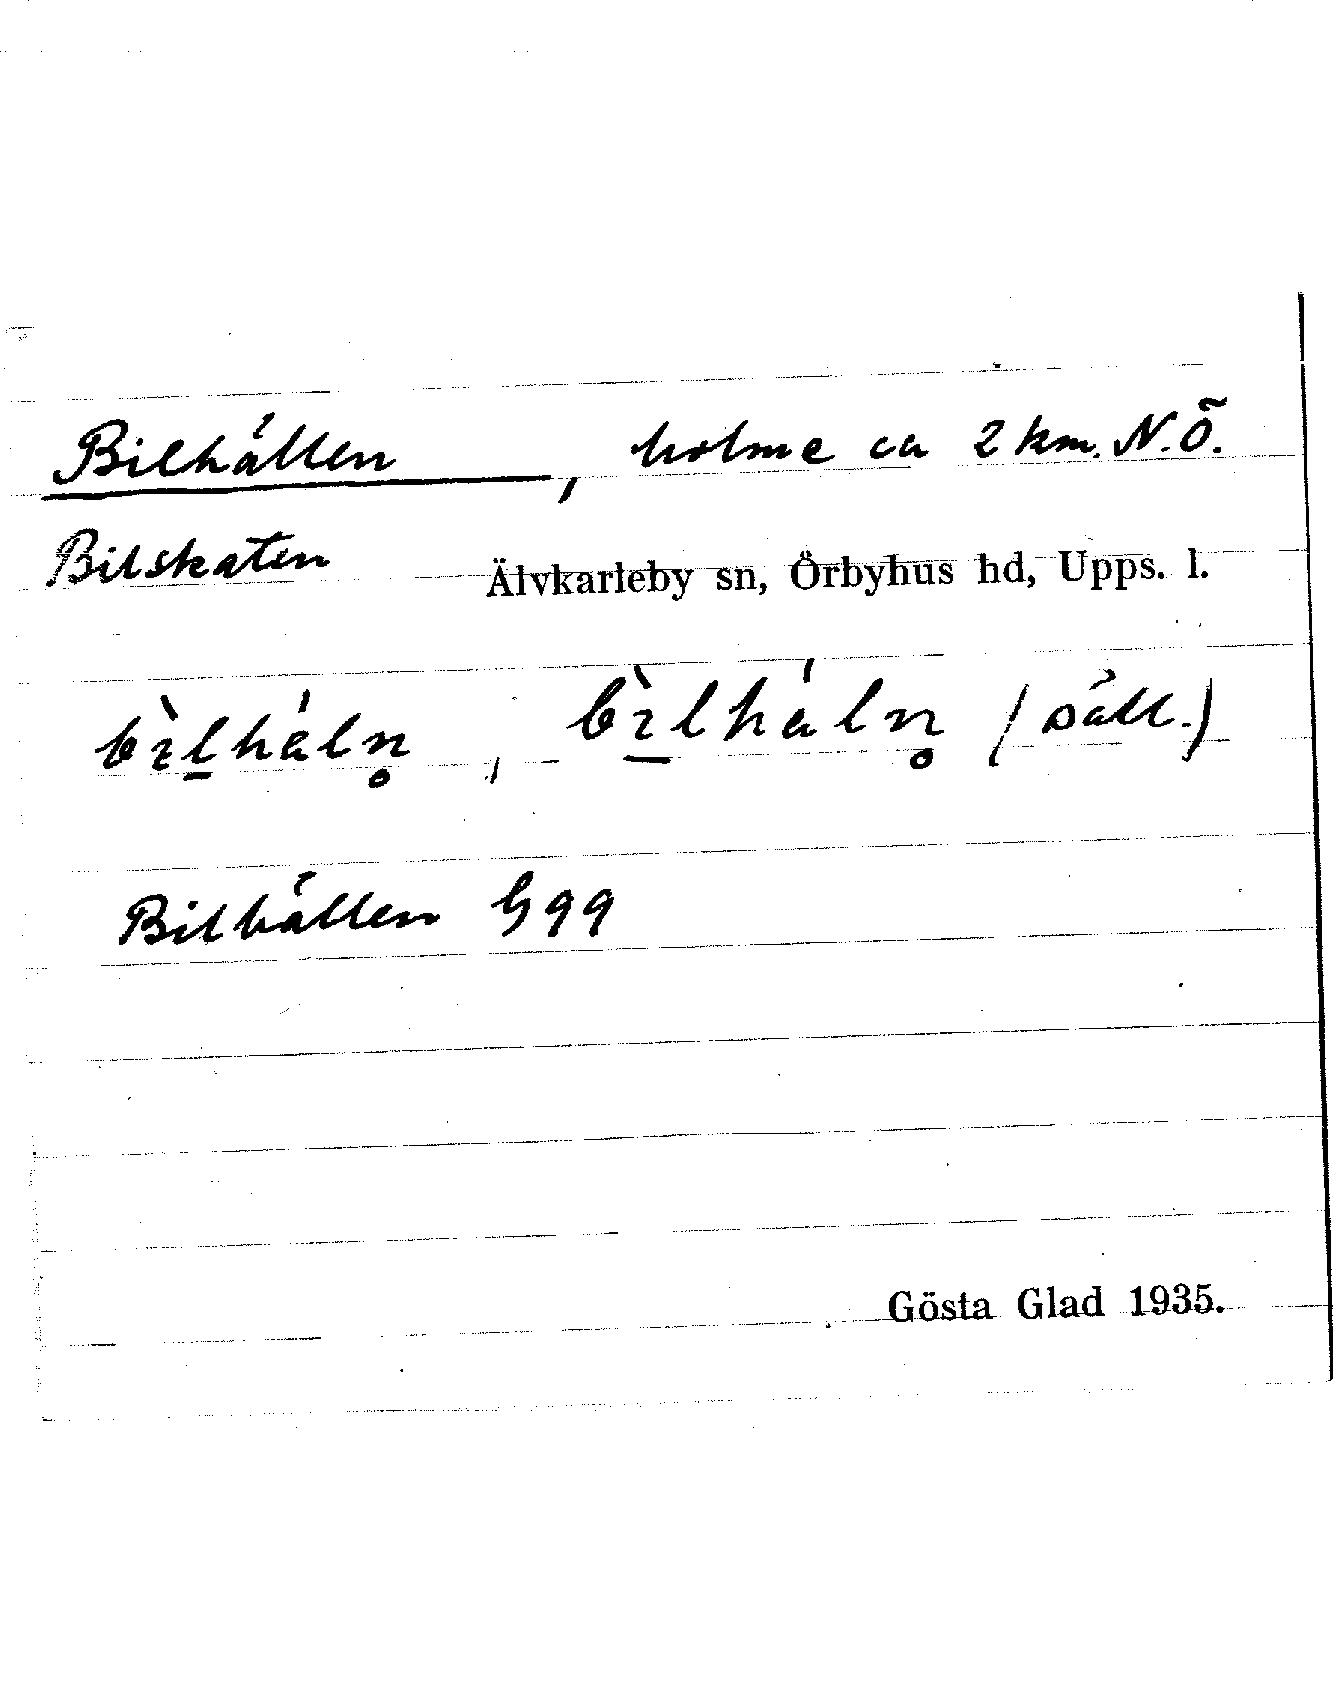 Bilhällen, holme ca 2 km. N.Ö.
Bilskaten Älvkarleby sn, Örbyhus hd, Upps. l.
bìlháln̥, bìlháln̥ (säll.)
Bilhällen G 99
Gösta Glad 1935.